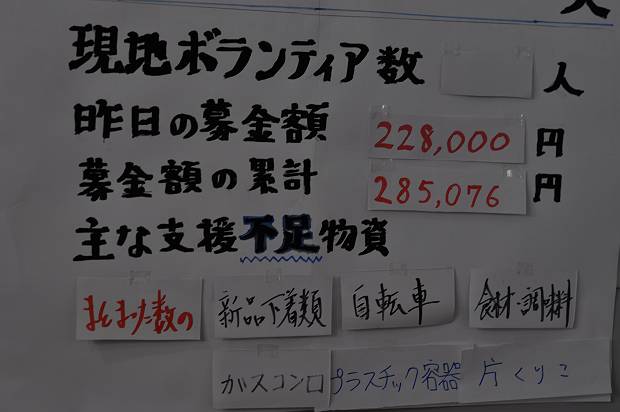 現地ボランティア数 人
昨日の募金額 228,000 円
募金額の累計 285,076 円
主な支援不足物資
まとまった数の 新品下着類 自転車 食材・調味料
ガスコンロ プラスチック容器 片くりこ